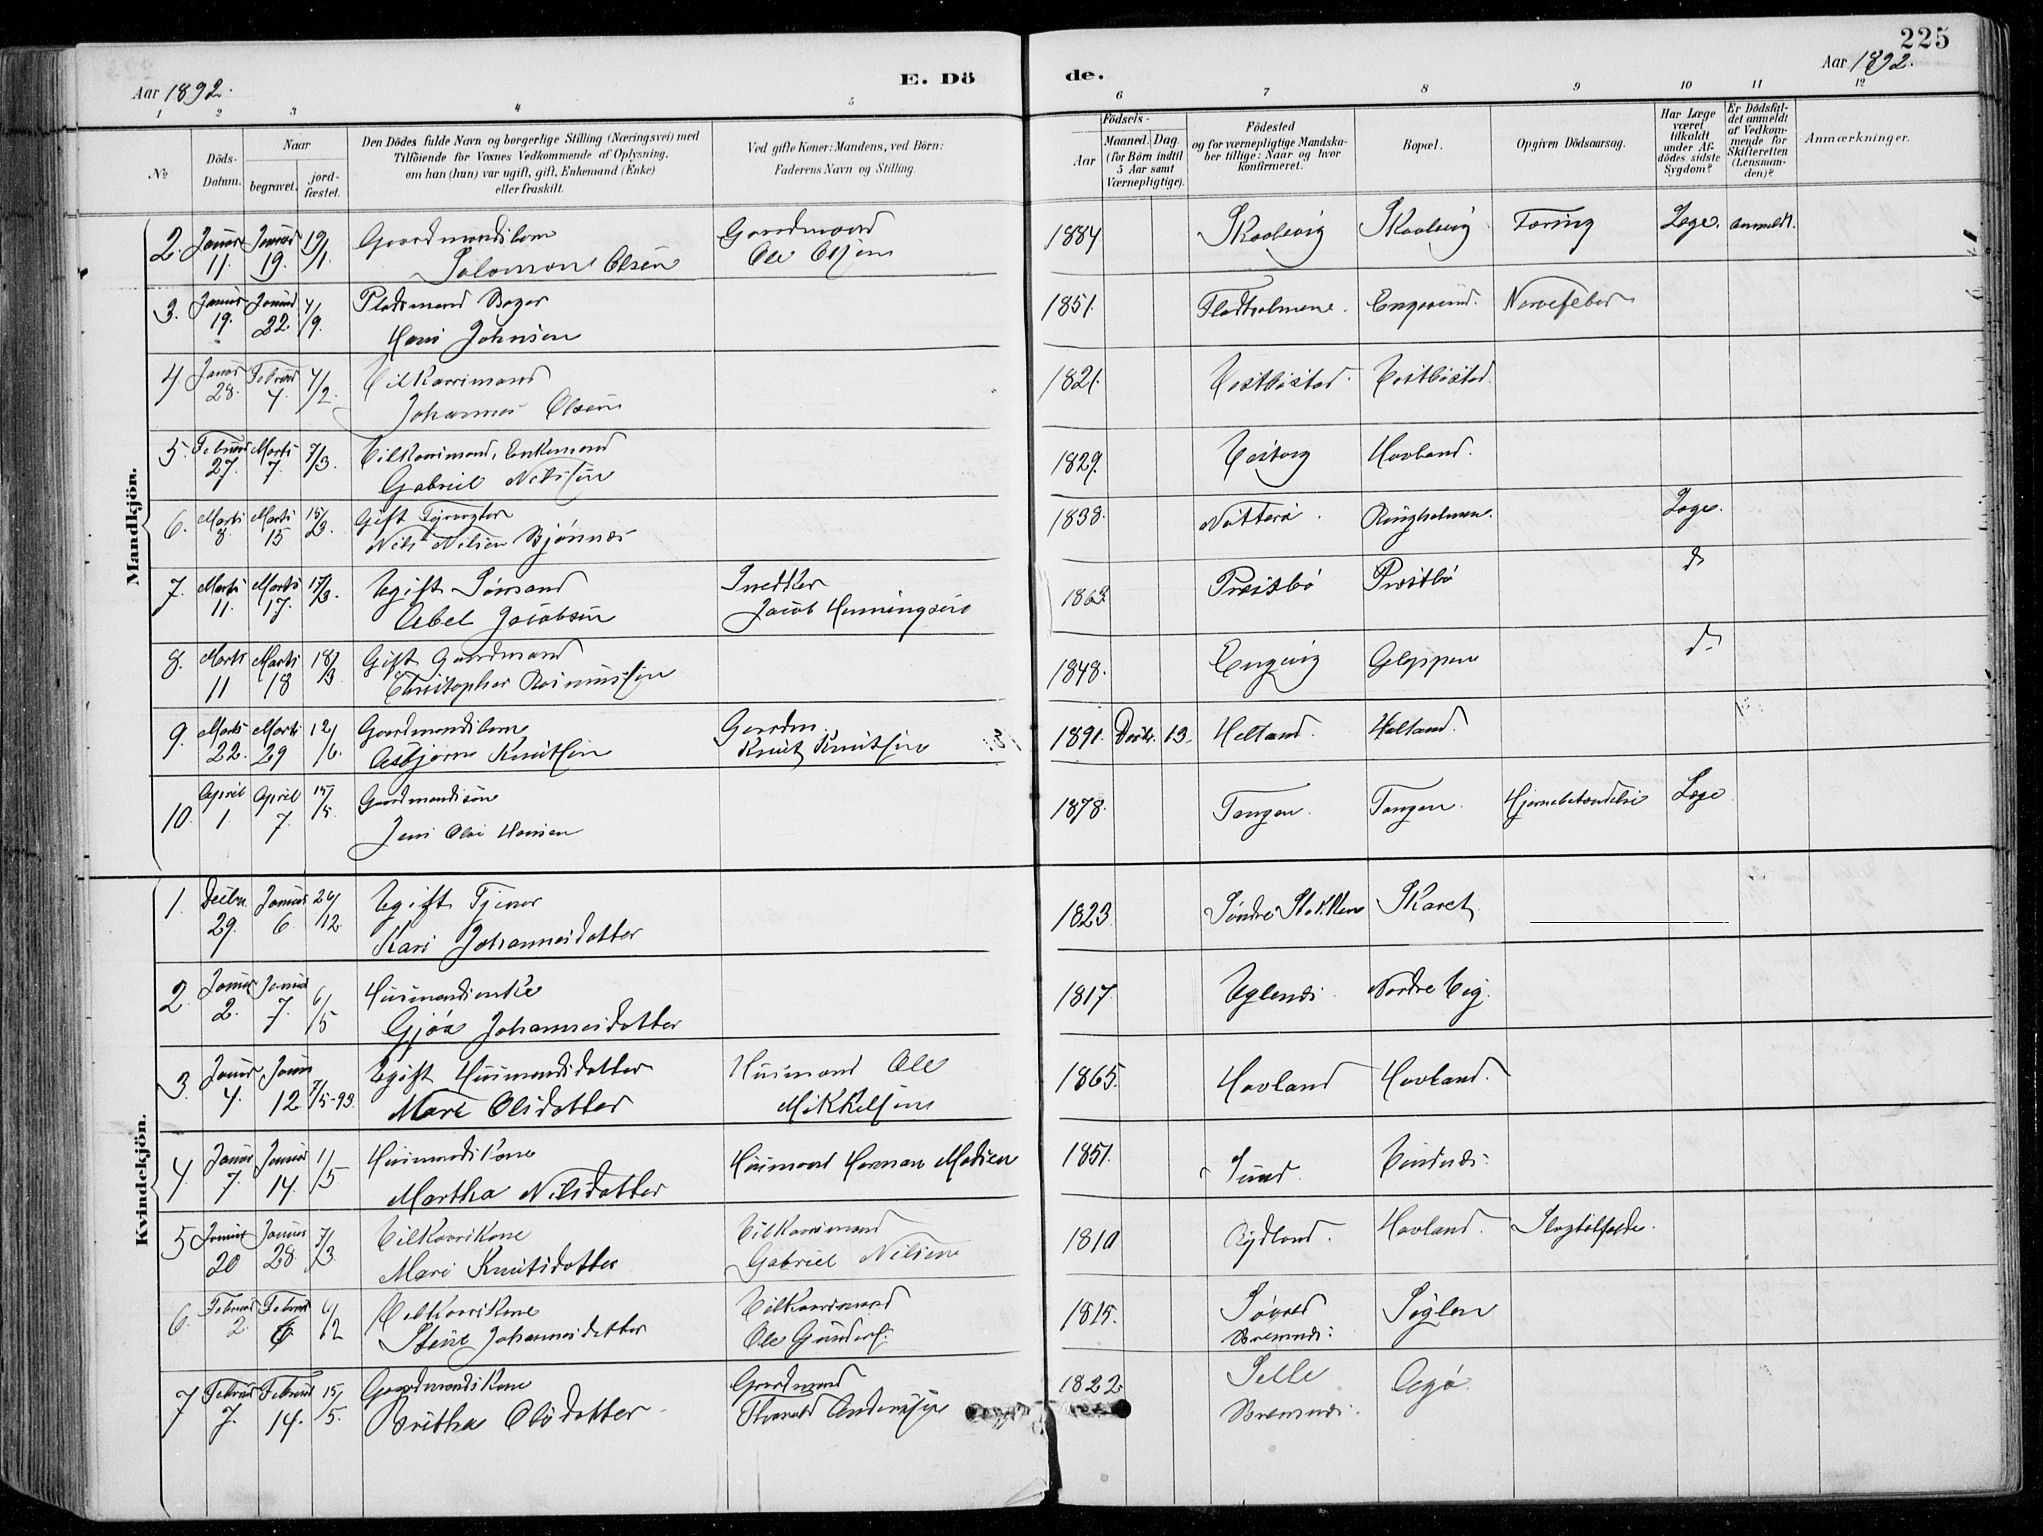 225
Aar 1892.
E. Dö
de.
Aar 1892.
1 2 3 4 5 6 7 8 9 10 11 12
No
Döds-Datum.
Naar
begravet.
jord-fæstet.
Den Dödes fulde Navn og borgerlige Stilling (Næringsvei) med
Tilföiende for Voxnes Vedkommende af Oplysning,
om han (hun) var ugift, gift, Enkemand (Enke)
eller fraskilt.
Ved gifte Koner: Mandens, ved Börn:
Faderens Navn og Stilling.
Födsels-
Aar
Maaned. Dag.
(for Börn indtil
5 Aar samt
Værnepligtige).
Födested
og for værnepligtige Mandska-
ber tillige: Naar og hvor
konfirmeret.
Bopæl.
Opgiven Dödsaarsag.
Har Læge
været
tilkaldt
under Af-
dödes sidste
Sygdom?
Er Dödsfal-
det anmeldt
af Vedkom-
mende for
Skifteretten
(Lensman-
den)?
Anmærkninger.
Mandkjön.
2. Januar 11. Januar 19. 19/1. Gaardmandslem Salomon Olsen Gaardmand Ole Olsen 1884 Skaalevig Skaalevig Tæring Læge. anmeldt.
3. Januar 19. Januar 22. 4/9. Pladsmand Bager Hans Johnsen 1851. Fladholmene. Engesund. Nervefeber
4. Januar 28. Februar 4. 4/2. Vilkaarsmand Johannes Olsen 1821. Vestbøstad. Vestbøstad.
5. Februar 27. Marts 7. 7/3. Vilkaarsmand, Enkemand Gabriel Nilssen 1829. Hovland.
6. Marts 8. Marts 15 15/3. Gift Fyrvogter Nils Nilsen Bjønnes 1838. Nøtterø. Ringholmen. Læge.
7. Marts 11. Marts 17. 17/3. Ugift Sømand Abel Jacobsen Snedker Jacob Henningsen 1863 Præstbø Præstbø do
8. Marts 11 Marts 18 18/3 Gift Gaardmand Christopher Rasmussen 1848. Engevig Gloppen do
9. Marts 22. Marts 29 12/6. Gaardmandslem Asbjørn Knutsen Gaardm. Knut Knutsen 1891. Decbr. 13. Helland. Helland.
10. April 1. April 7. 15/5. Gaardmandssøn Jens Olai Hansen 1878. Tangen. Tangen. Hjernebetændelse Læge
Kvindekjön.
1. Decbr. 29. Januar 6. 26/12. Ugift Tjener Kari Johannesdatter 1823 Søndre Stokken Skaret
2. Januar 2. Januar 7. 6/5 Husmandsenke Gjøa Johannesdatter 1817 Uglenes. Nordre
3. Januar 4. Januar 12. 7/5-93. Ugift Husmandsdatter Mari Olsdatter Husmand Ole Mikkelsen 1865. Hovland Hovland.
4. Januar 7. Januar 14. 1/5 Husmandskone Martha Nilsdatter Husmand Herman Madsen 1851. Sund Vindnes.
5 Januar 20 Januar 28. 7/3 Vilkaarskone Mari Knutsdatter Vilkaarsmand Gabriel Nilsen 1810 Rydland. Hovland. Slagtilfælde.
6. Februar 2. Februar 6. 6/12 Vilkaarskone Stine Johannesdatter Vilkaarsmand Ole Gunders: 1815. Bremnes: Søglen
7 Februar 7. Februar 14. 15/5. Gaardmandskone Britha Olsdatter Gaardmand Andersen 1822 Selle Bremnes. Agø.